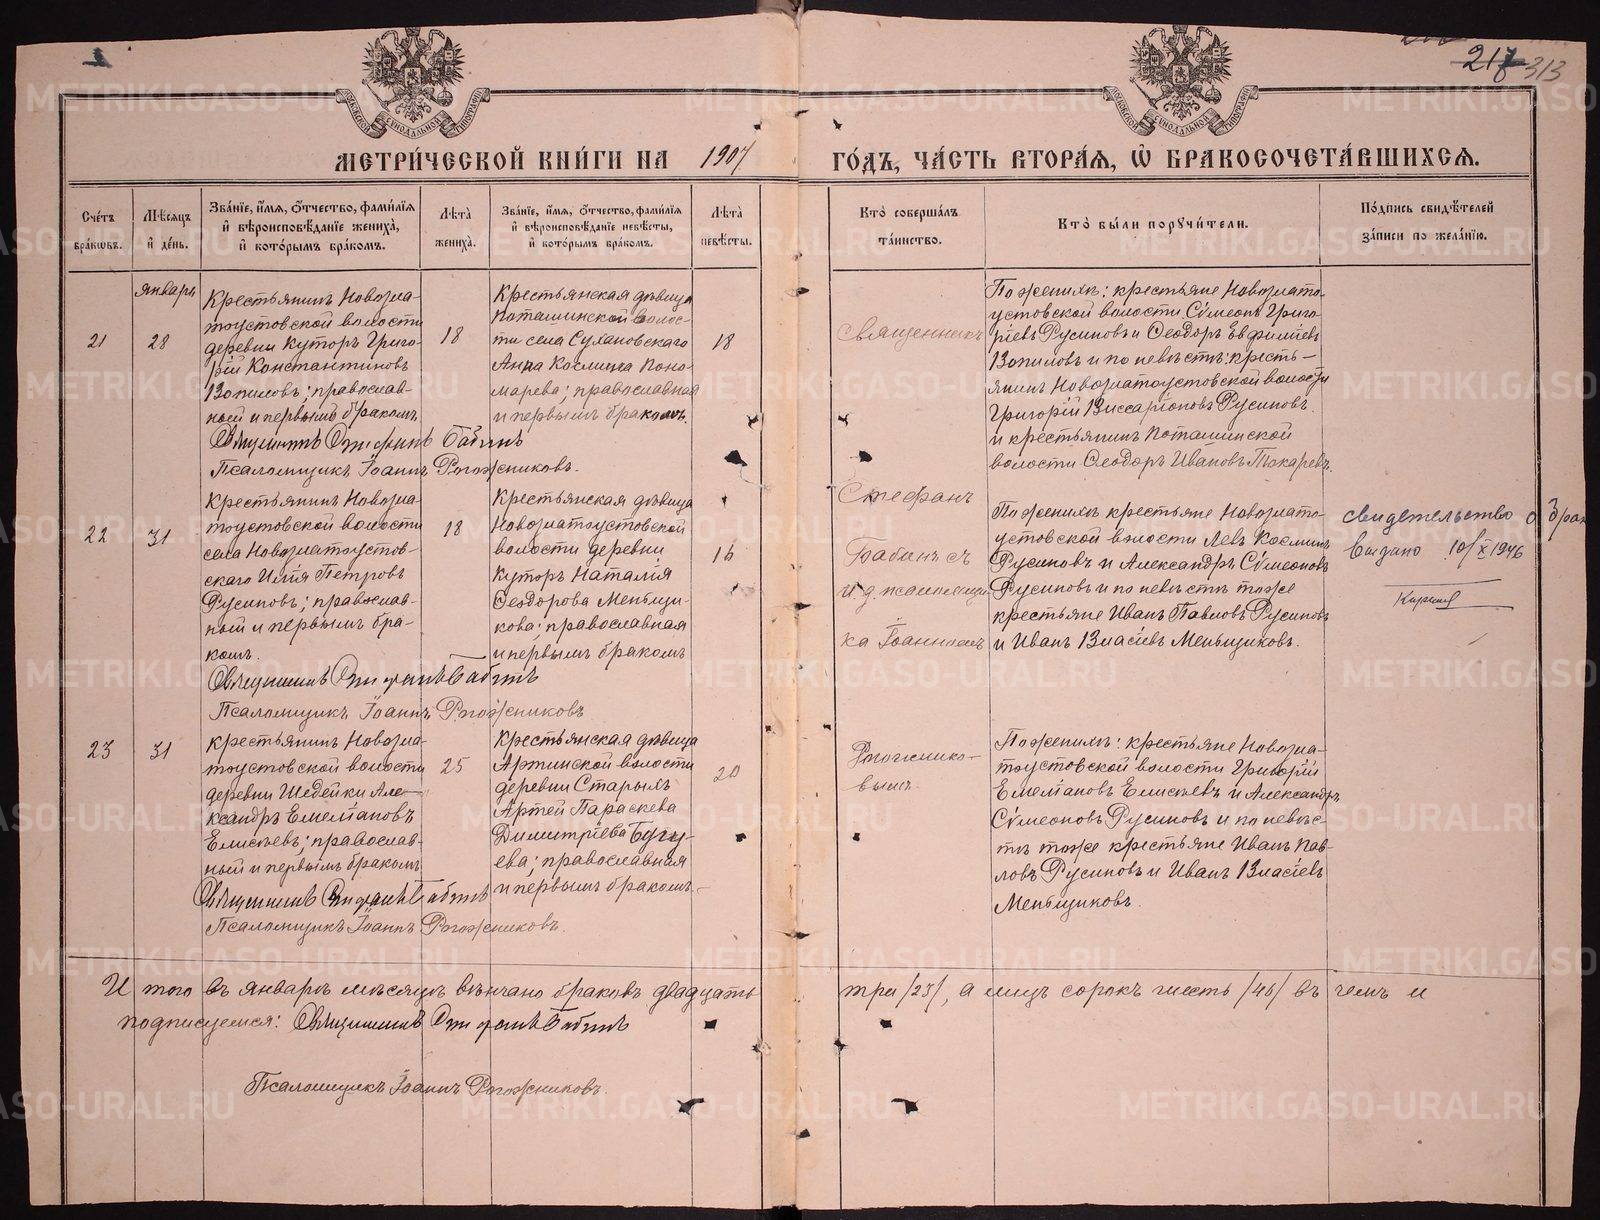 217 313
МЕТРИ́ЧЕСКОЙ КНИ́ГИ НА 1907 ГО́ДЪ, ЧА́СТЬ ВТОРА́Я, Ѡ БРАКОСОЧЕТА́ВШИХСЯ.
Сче́тъ бра́кѡвъ.
Мѣ́сяцъ и҆ де́нь.
Зва́нїе, и҆́мя, ѻ҆́тчество, фами́лїя и҆ вѣроисповѣ́данїе жениха̀, и҆ кото́рымъ бра́комъ.
Лѣ́та̀ жениха̀.
Зва́нїе, и҆́мя, ѻ҆́тчество, фами́лїя и҆ вѣроисповѣ́данїе невѣ́сты, и҆ кото́рымъ бра́комъ.
Лѣ́та̀ невѣ́сты.
Кто̀ соверша́лъ та́инство.
Кто̀ бы́ли порꙋчи́тели.
По́дпись свидѣ́телей за́писи по жела́нїю.
январь
21
28
Крестьянинъ Новозла-
тоустовской волости
деревни Куторъ Григо-
рій Константиновъ
Вопиловъ; православ-
ный и первымъ бракомъ.
18
Крестьянская дѣвица
Поташинской волос-
ти села Сухановскаго
Анна Космина Поно-
марева; православная
и первымъ бракомъ.
18
Священникъ
По женихѣ: крестьяне Новозлато-
устовской волости Сѵмеонъ Григо-
ріевъ Русиновъ и Ѳеодоръ Евфиміевъ
Вопиловъ и по невѣстѣ: кресть-
янинъ Новозлатоустовской волости
Григорій Виссаріоновъ Русиновъ
и крестьянинъ Поташинской
волости Ѳеодоръ Ивановъ Токаревъ.
Священникъ Стефанъ Бабинъ
Псаломщикъ Іоаннъ Рогожниковъ.
22
31
Крестьянинъ Новозла-
тоустовской волости
села Новозлатоустов-
скаго Илія Петровъ
Русиновъ; православ-
ный и первымъ бра-
комъ.
18
Крестьянская дѣвица
Новозлатоустовской
волости деревни
Куторъ Наталія
Ѳеодорова Меньщи-
кова; православная
и первымъ бракомъ
16
Стефанъ
Бабинъ съ
и. д. псаломщи-
ка Іоанномъ
По женихѣ крестьяне Новозлато-
устовской волости Левъ Косминъ
Русиновъ и Александръ Сѵмеоновъ
Русиновъ и по невѣстѣ тоже
крестьяне Иванъ Павловъ Русиновъ
и Иванъ Власіевъ Меньщиковъ.
свидетельство о браке
выдано 10/X 1946
Священникъ Стефанъ Бабинъ
Псаломщикъ Іоаннъ Рогожниковъ
23
31
Крестьянинъ Новозла-
тоустовской волости
деревни Шедейки Але-
ксандръ Емеліановъ
Елисѣевъ; православ-
ный и первымъ бракомъ
25
Крестьянская дѣвица
Артинской волости
деревни Старыхъ
Артей Параскева
Димитріева Бугу-
ева; православная
и первымъ бракомъ.
20
Рогожнико-
вымъ.
По женихѣ: крестьяне Новозла-
тоустовской волости Григорій
Емеліановъ Елисѣевъ и Александръ
Сѵмеоновъ Русиновъ и по невѣс-
тѣ тоже крестьяне Иванъ Пав-
ловъ Русиновъ и Иванъ Власіевъ
Меньщиковъ.
Священникъ Стефанъ Бабинъ
Псаломщикъ Іоаннъ Рогожниковъ.
Итого въ январѣ мѣсяцѣ вѣнчано браковъ двадцать три /23/, а лицъ сорокъ шесть /46/ въ чемъ и
подписуемся: Священникъ Стефанъ Бабинъ
Псаломщикъ Іоаннъ Рогожниковъ.